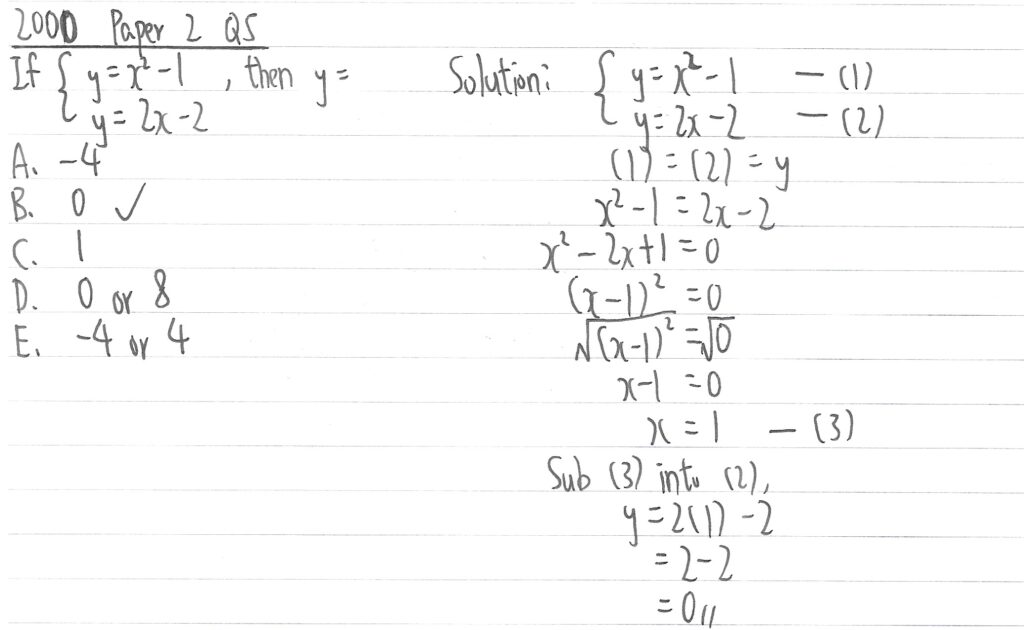 2000 Paper 2 Q5
If { y = x² - 1 , then y =
y = 2x - 2
A. -4
B. 0 ✓
C. 1
D. 0 or 8
E. -4 or 4
Solution: { y = x² - 1 — (1)
y = 2x - 2 — (2)
(1) = (2) = y
x² - 1 = 2x - 2
x² - 2x + 1 = 0
(x - 1)² = 0
√(x - 1)² = √0
x - 1 = 0
x = 1 — (3)
Sub (3) into (2),
y = 2(1) - 2
= 2 - 2
= 0 //